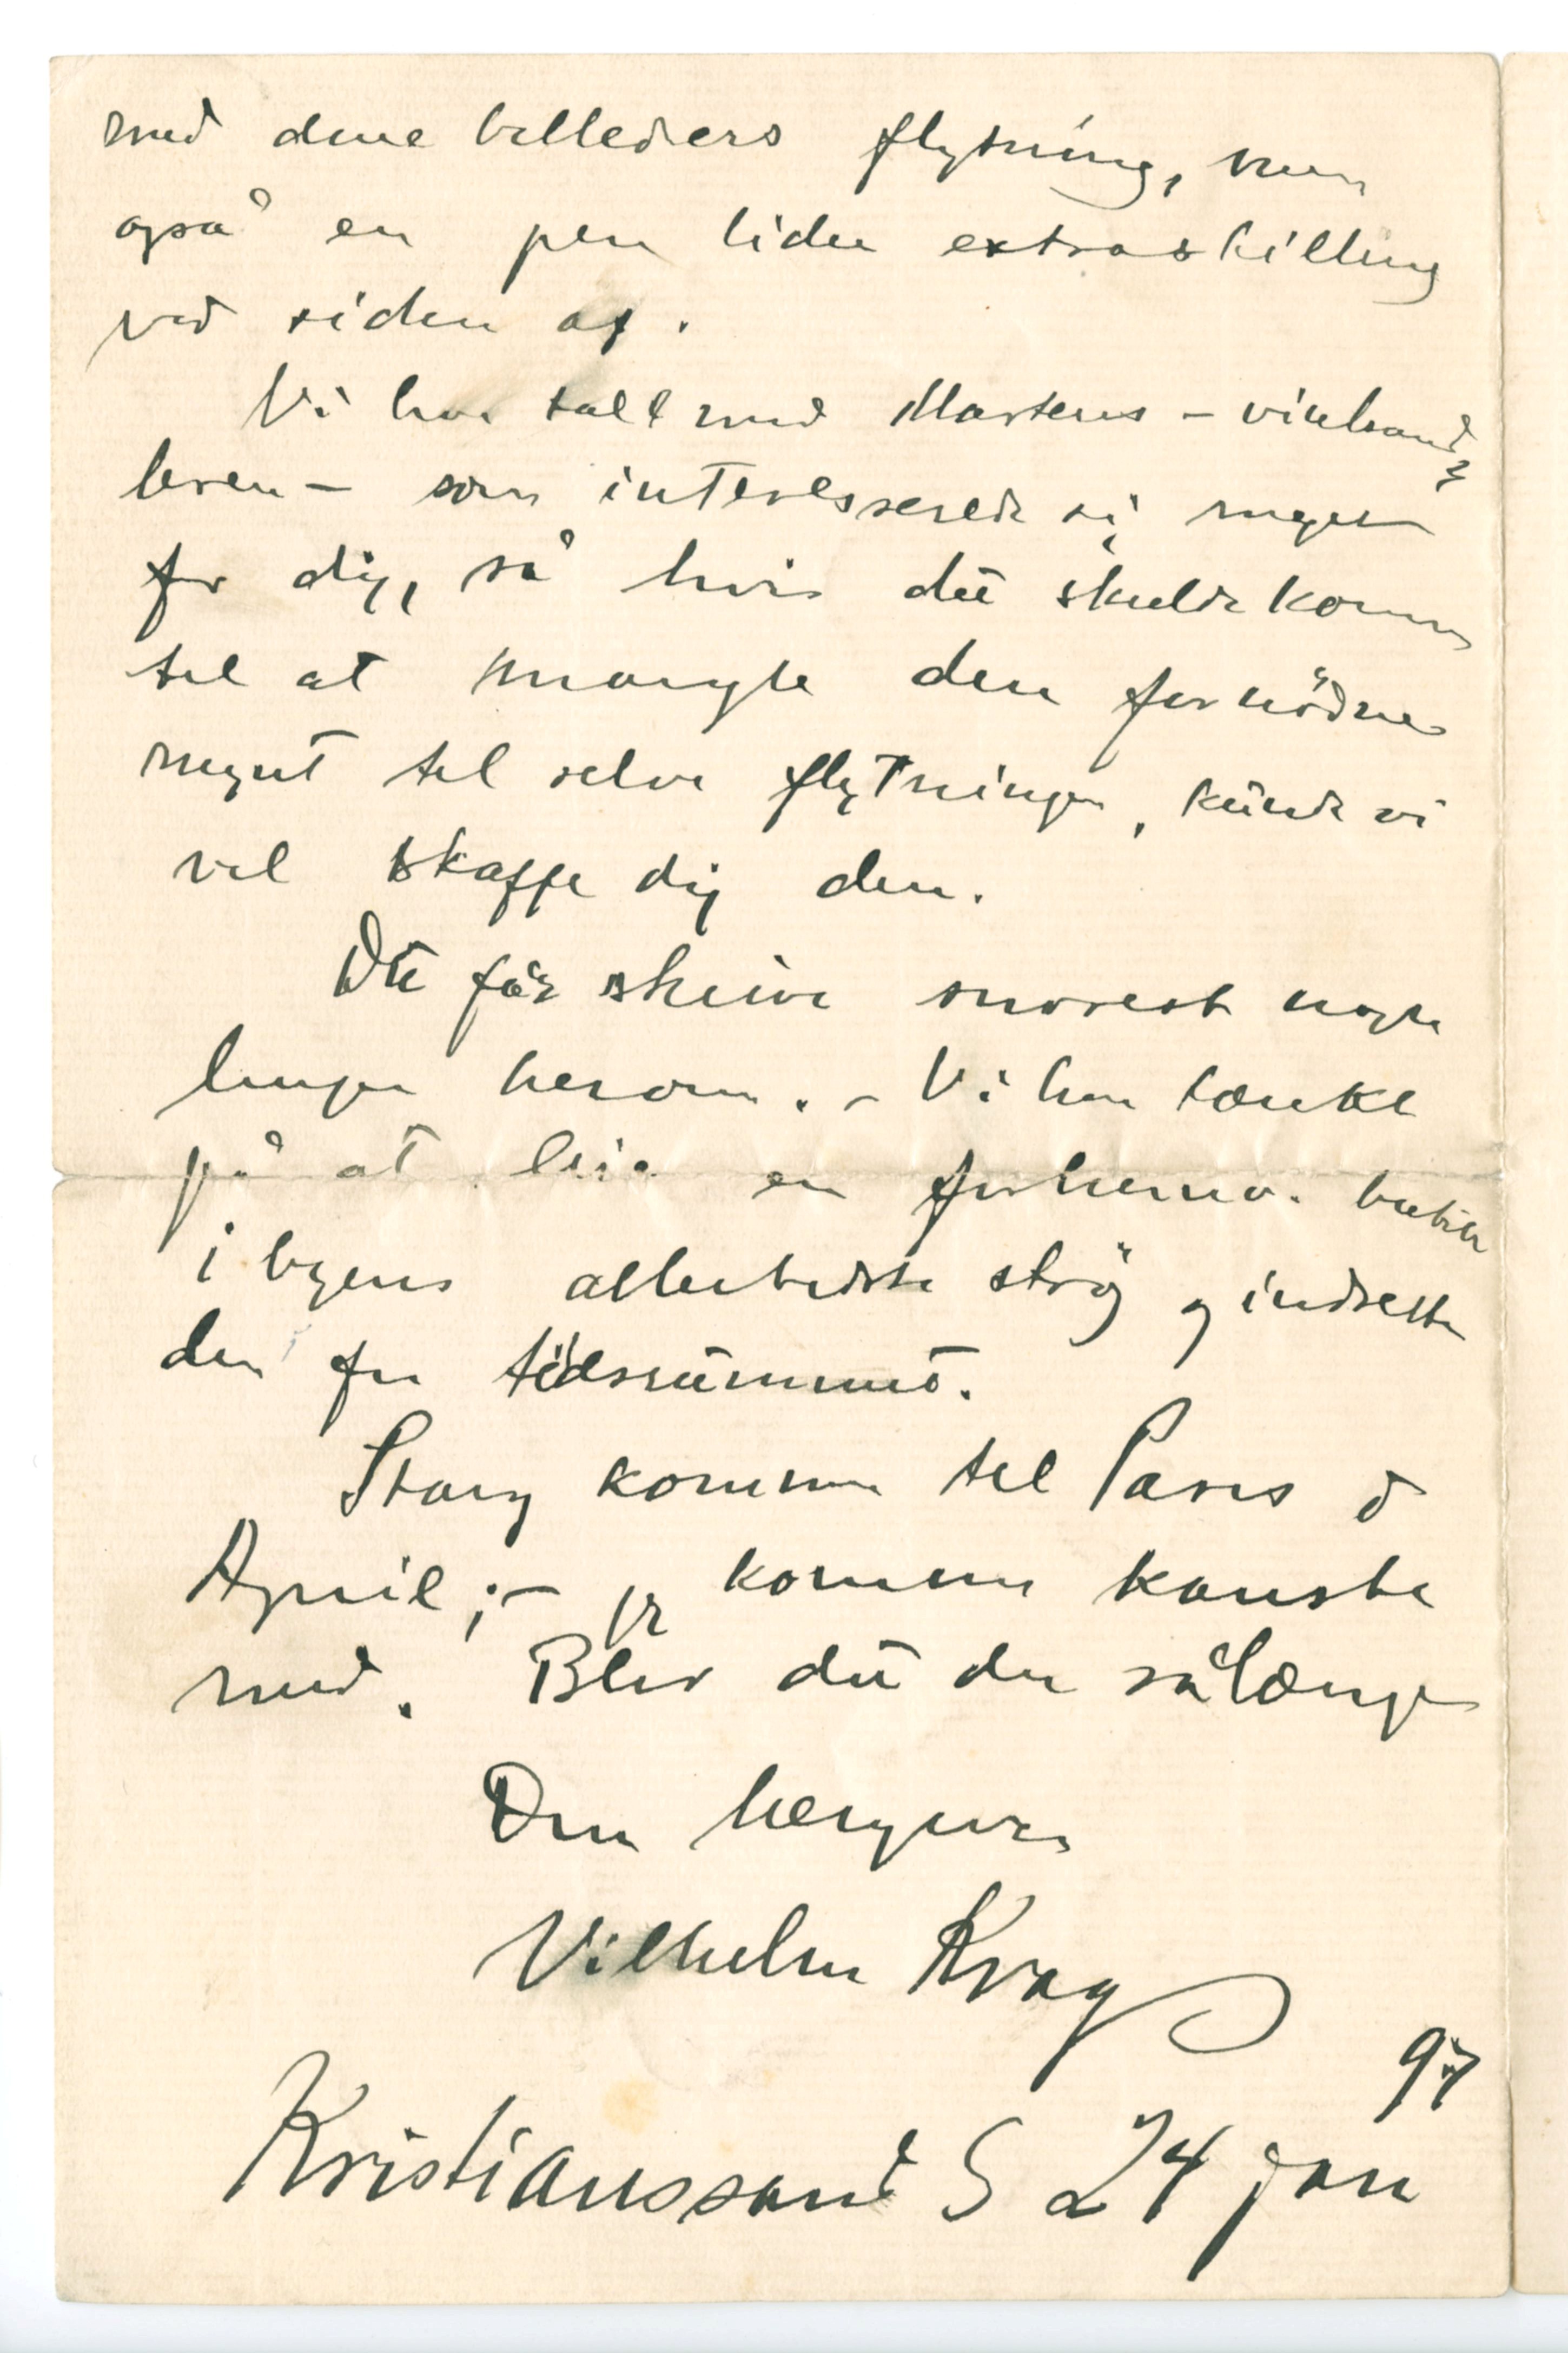 med dine billeders flytning, men
også en pen liden extraskilling
ved siden af.
Vi har talt med Martens – vinhand=
leren – som interesserede sig meget
for dig, så hvis du skulde komme
til at mangle den fornödne
mynt til selve flytningen, kunde vi
vel skaffe dig den.
Du får skrive snarest nogle
linjer herom. – Vi har tænkt
på at leie en forhenv. butik
i byens allerbedste strög og indrette
den for tidsrummet.
Stang kommer til Paris d
April; – jeg kommer kanske
med. Blir du der sålænge
Din hengivne
Vilhelm Krag
Kristianssand S 24 jan 97